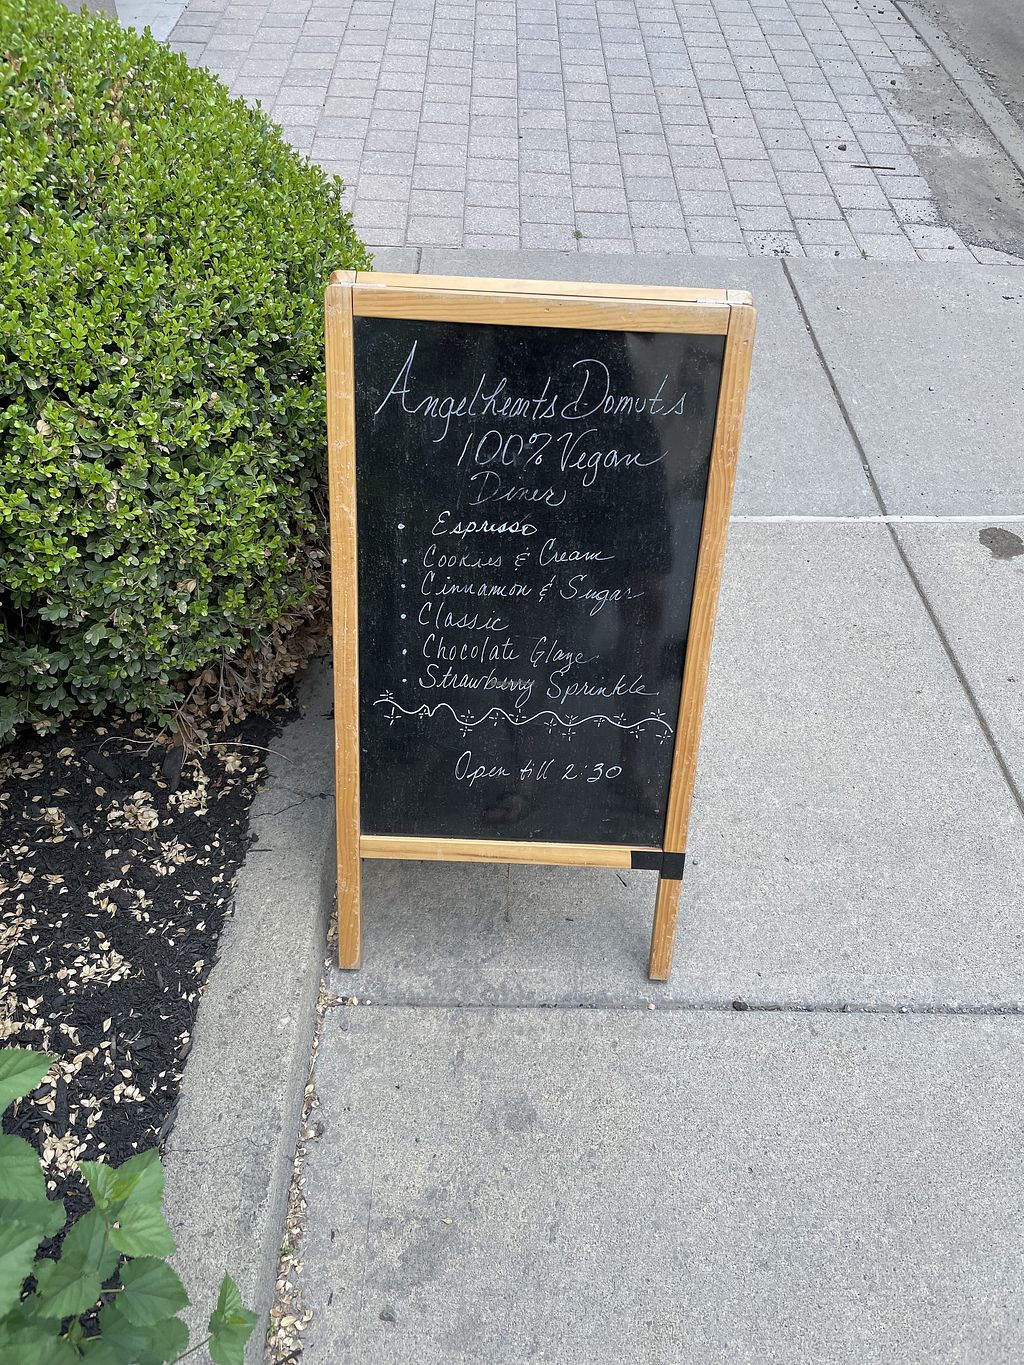 Angelhearts Donuts
100% Vegan
Diner
• Espresso
• Cookies & Cream
• Cinnamon & Sugar
• Classic
• Chocolate Glaze
• Strawberry Sprinkle
Open till 2:30